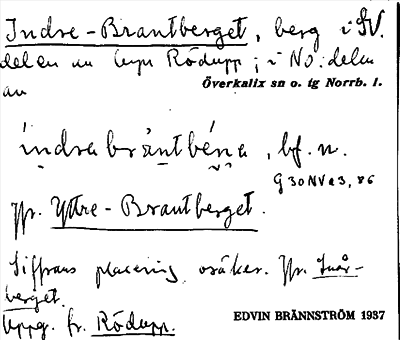 Indre-Brantberget, berg i SV.
delen av byn Rödupp; i NO. delen
av
Överkalix sn o. tg Norrb. l.
índrabràntbéna, bf. n.
G30NVe3, 86
Jfr. Yttre-Brantberget.
Siffrans placering osäker. Jfr.
berget.
Uppg. fr. Rödupp.
EDVIN BRÄNNSTRÖM 1937